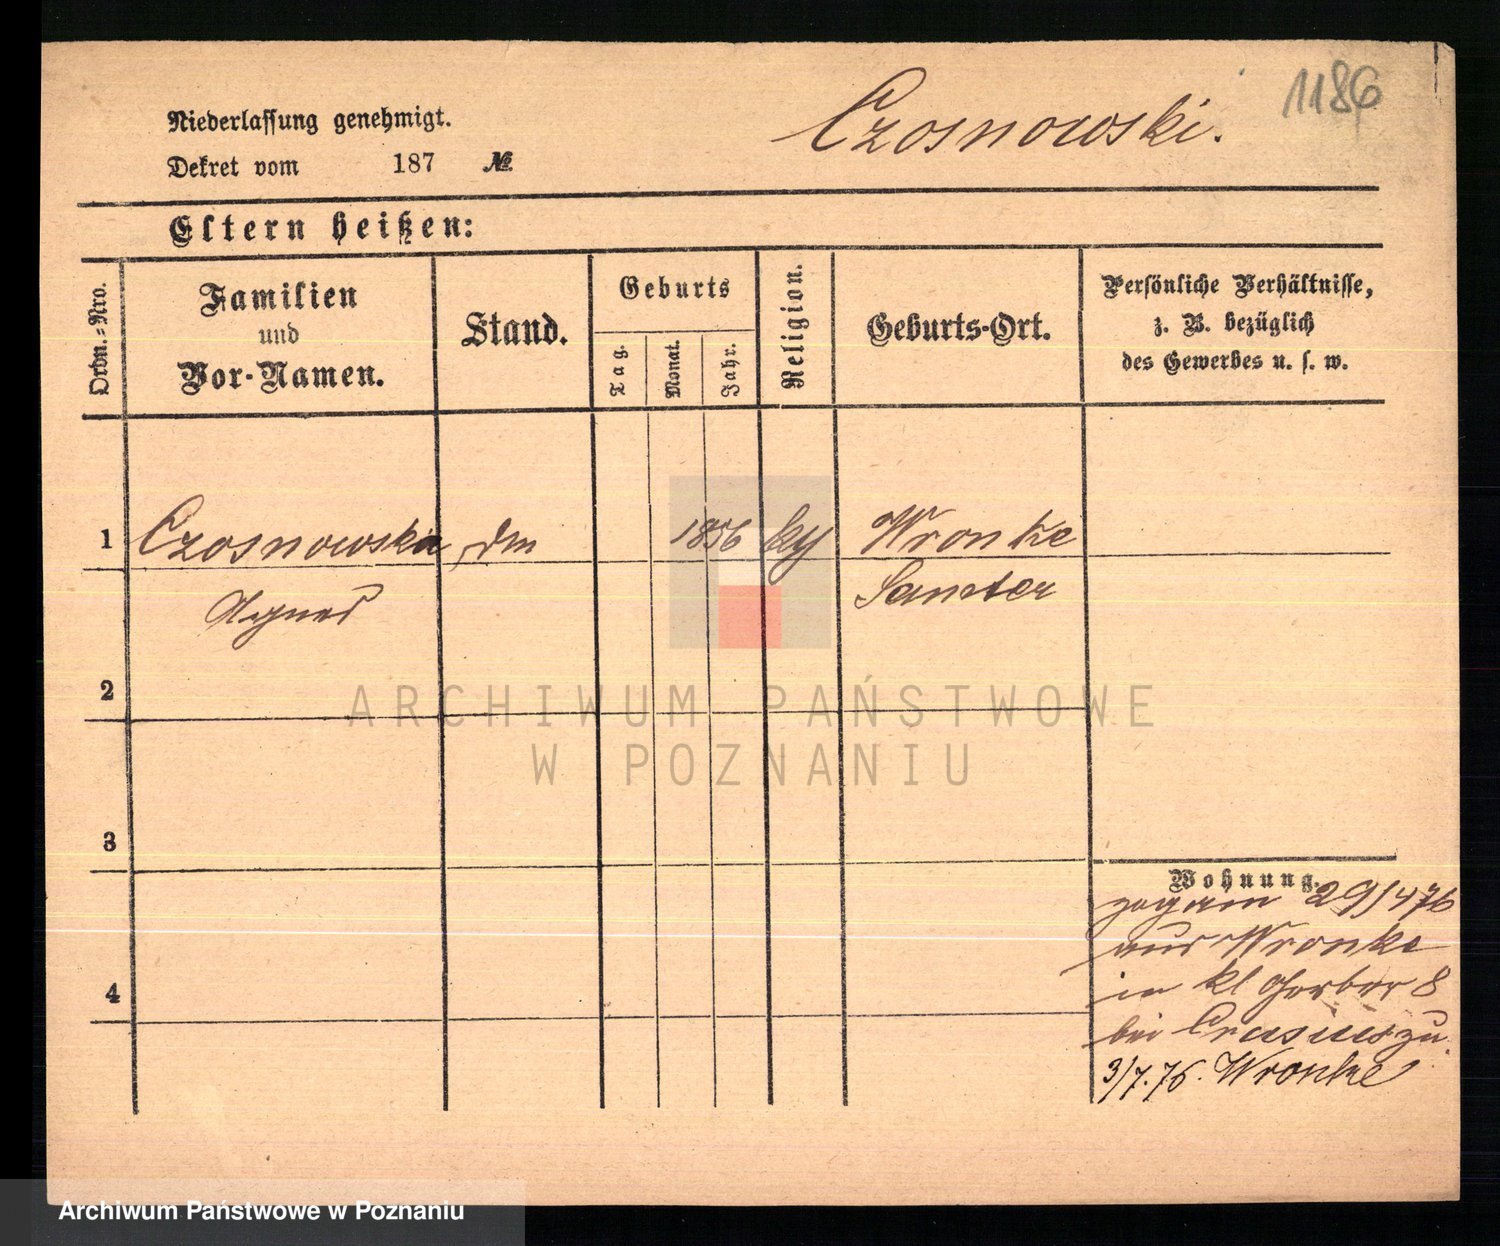 1186
Czosnowski.
Niederlassung genehmigt.
Dekret vom 187 №
Eltern heißen:
Ordn.-Nro.
Familien
und
Vor-Namen.
Stand.
Geburts
Tag.
Monat.
Jahr.
Religion.
Geburts-Ort.
Persönliche Verhältnisse,
z. B. bezüglich
des Gewerbes u. s. w.
1 Czosnowska 1856 Wronke
Agnes Samter
2
ARCHIWUM PAŃSTWOWE
W POZNANIU
3
Wohnung.
29/4 76
aus Wronke
in kl Gerber 8
bei
4
3/7.76. Wronke
Archiwum Państwowe w Poznaniu